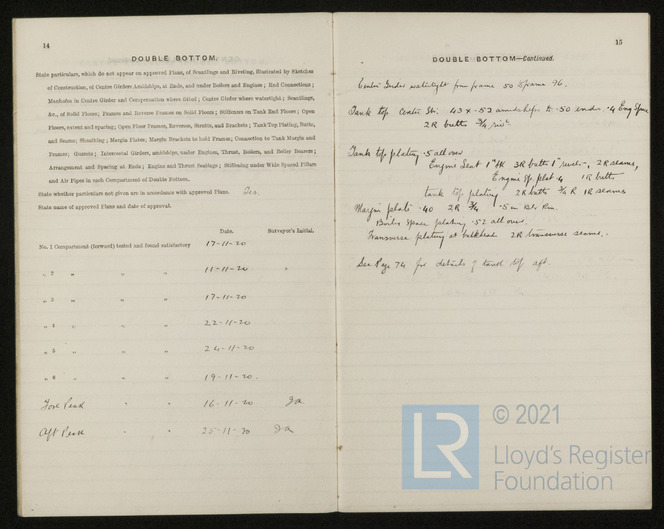 14
DOUBLE BOTTOM.
State particulars, which do not appear on approved Plans, of Scantlings and Riveting, illustrated by Sketches
of Construction, of Centre Girders Amidships, at Ends, and under Boilers and Engines; End Connections;
Manholes in Centre Girder and Compensation where fitted; Centre Girder where watertight; Scantlings,
&c., of Solid Floors; Frames and Reverse Frames on Solid Floors; Stiffeners on Tank End Floors; Open
Floors, extent and spacing; Open Floor Frames, Reverses, Struts, and Brackets; Tank Top Plating, Butts,
and Seams; Sheathing; Margin Plates; Margin Brackets in hold Frames; Connection to Tank Margin and
Frames; Gussets; Intercostal Girders, amidships, under Engines, Thrust, Boilers, and Boiler Bearers;
Arrangement and Spacing at Ends; Engine and Thrust Seatings; Stiffening under Wide Spaced Pillars
and Air Pipes in each Compartment of Double Bottom.
State whether particulars not given are in accordance with approved Plans. Yes.
State name of approved Plans and date of approval.
Date. Surveyor's Initial.
No. 1 Compartment (forward) tested and found satisfactory 17-11-20
„ 2 „ „ „ 11-11-20 „
„ 3 „ „ „ 17-11-20
„ 4 „ „ „ 22-11-20
„ 5 „ „ „ 24-11-20
„ 6 „ „ „ 19-11-20.
Fore Peak „ „ 16-11-20
Aft Peak „ „ 25-11-20
15
DOUBLE BOTTOM—Continued.
Center Girder watertight from frame 50 to frame 96.
Tank top Center Str. 43 x .52 amidships to .50 ends. .4 Eng Space
2R butts 3/4 riv
Tank top plating .5 all over
Engine Seat 1" 3R butts 1" rivets, 2R seams,
Engine Sp. plat 1R butts
tank top plating 2R butts 3/4 R 1R seams
Margin plate .40 2R 3/4 .5 in Blr Rm.
Boiler Space plating .52 all over.
Transverse plating at bulkhead 2R transverse seams.
See Page 74 for details of tank top aft.
LR
© 2021
Lloyd's Register
Foundation